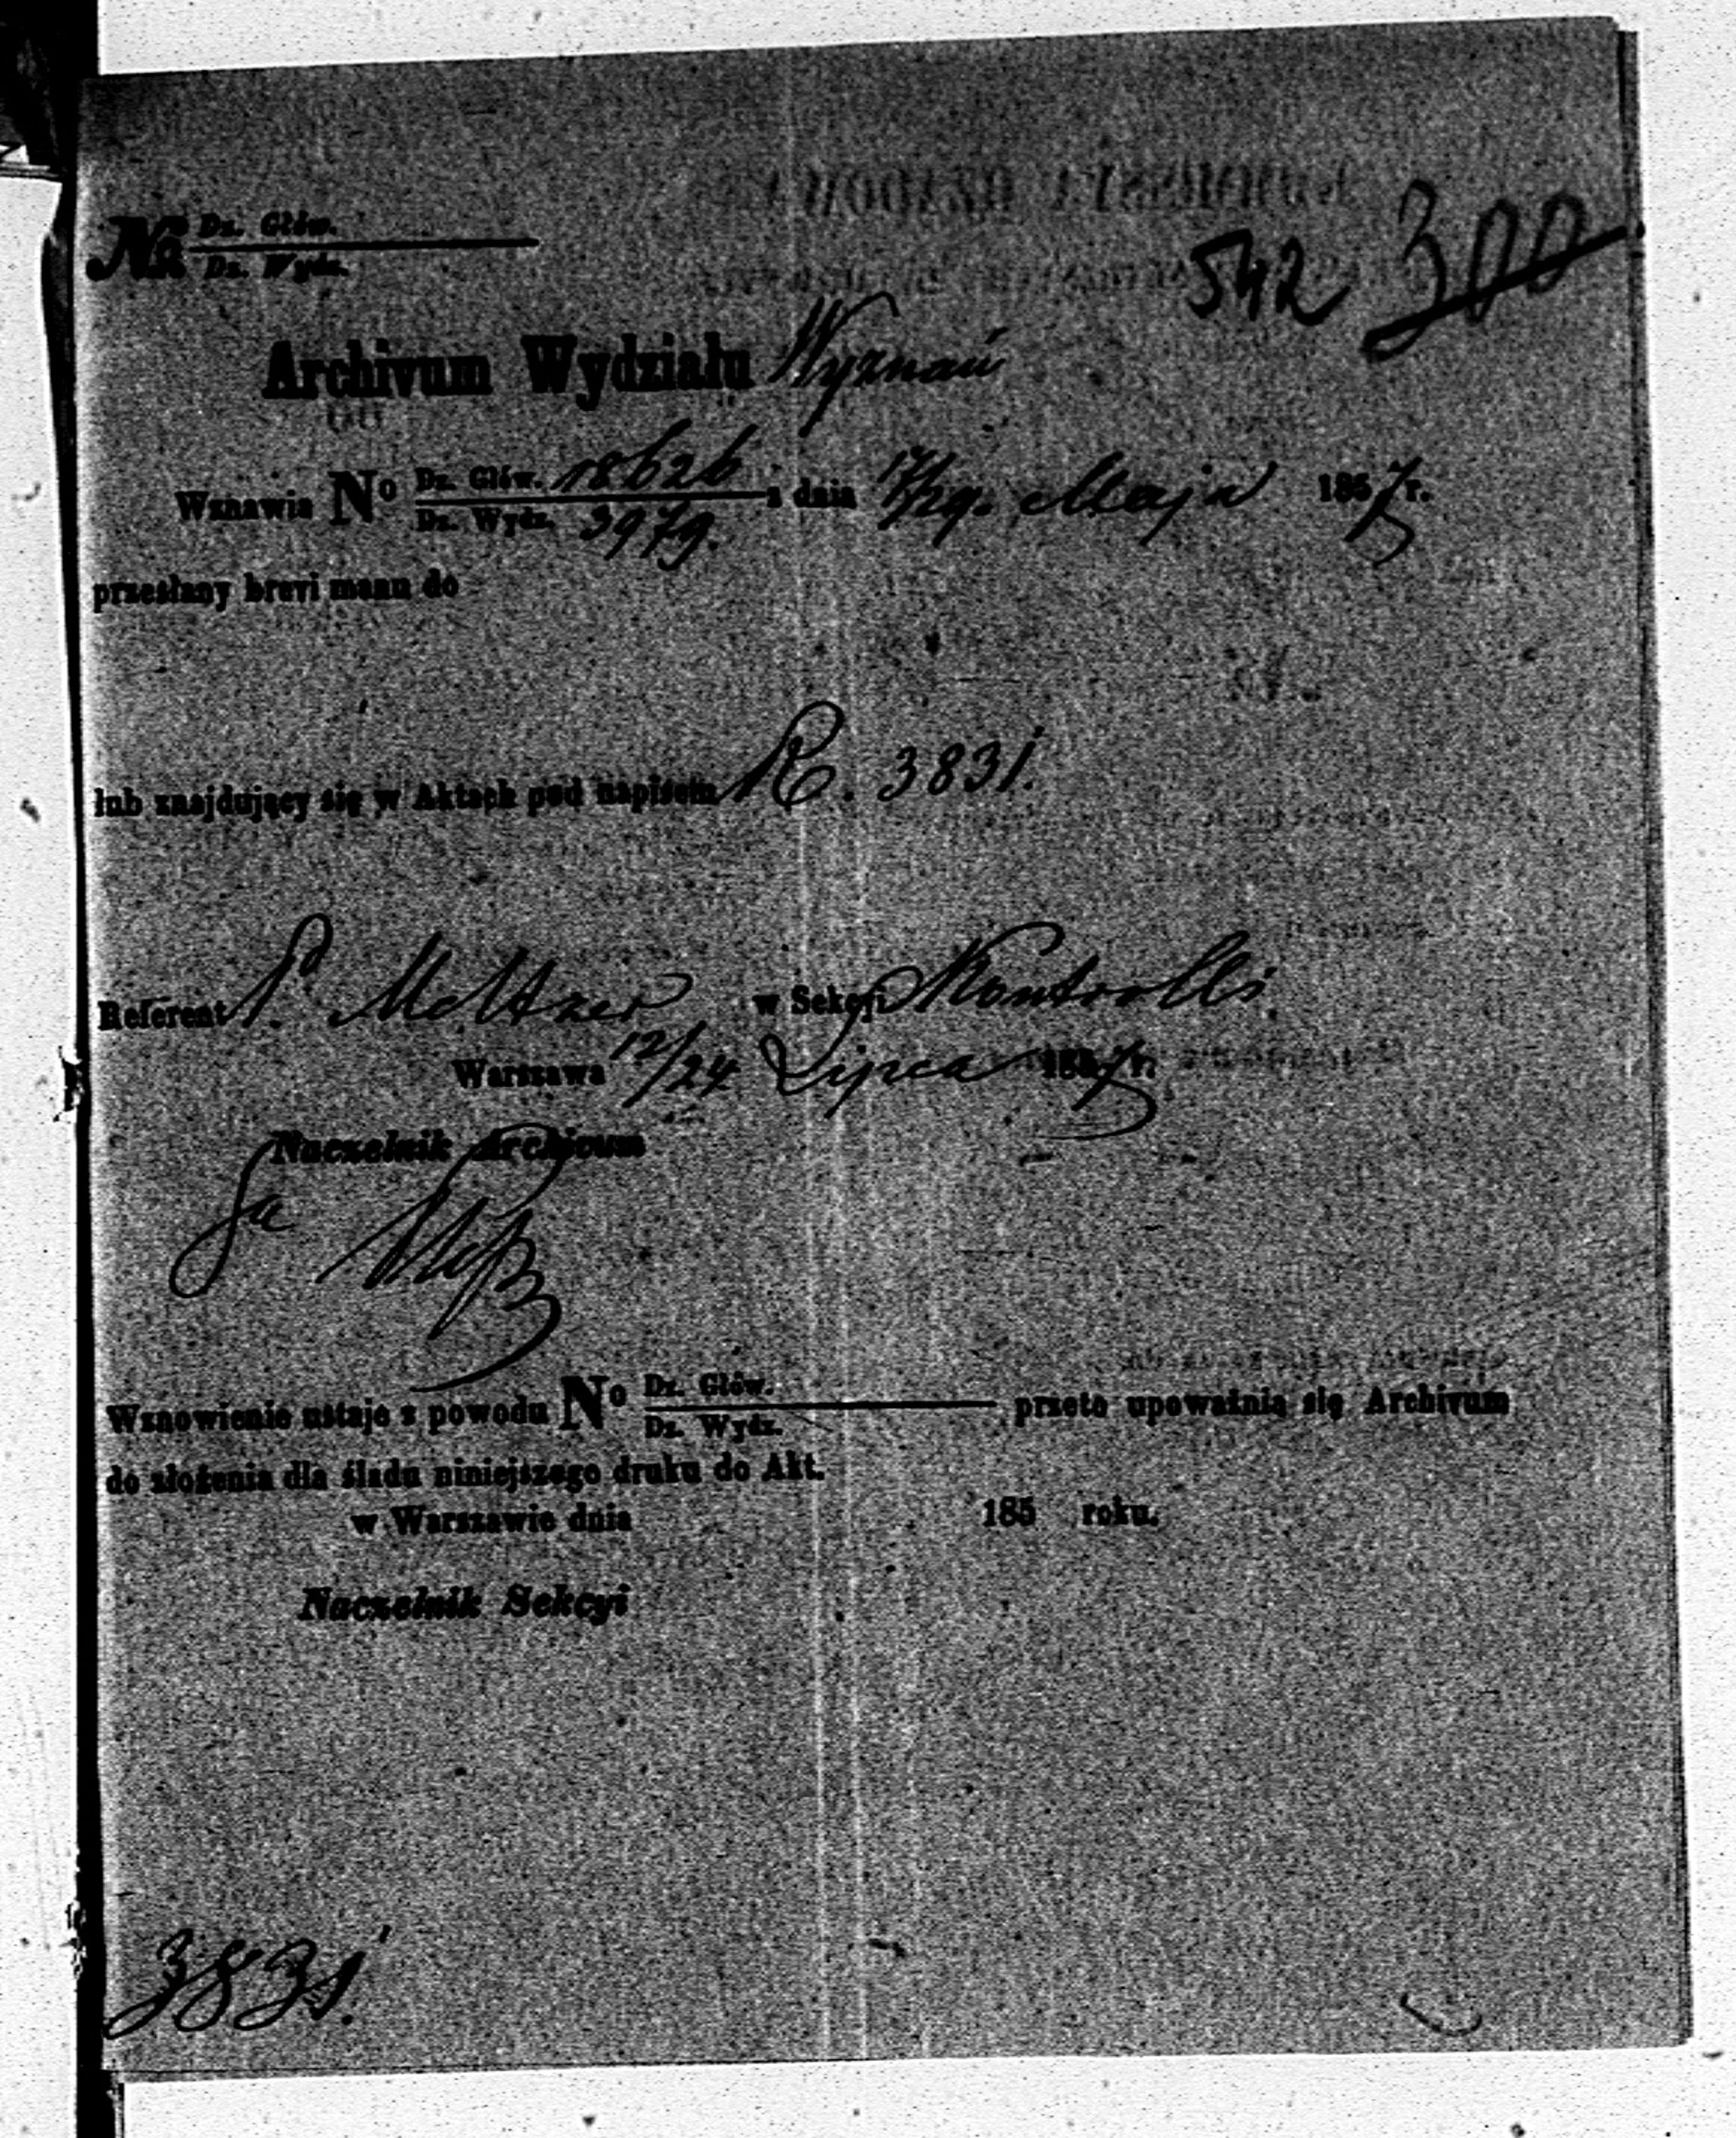 542 300
No Dz. Głów.
Dz. Wydz.
Archivum Wydziału Wyznań
Wznawia No Dz. Głów. 18626 z dnia 17/29. Maja 1857 r.
Dz. Wydz. 3979.
przesłany brevi manu do
lub znajdujący się w Aktach pod napisem R. 3831.
Referent P. Meltzer w Sekcyi Kontrolli
Warszawa 12/24 Lipca 1857 r.
Naczelnik Archivum
Za
Wznowienie ustaje z powodu No Dz. Głów. przeto upoważnia się Archivum
Dz. Wydz.
do złożenia dla śladu niniejszego druku do Akt.
w Warszawie dnia 185 roku.
Naczelnik Sekcyi
3831.